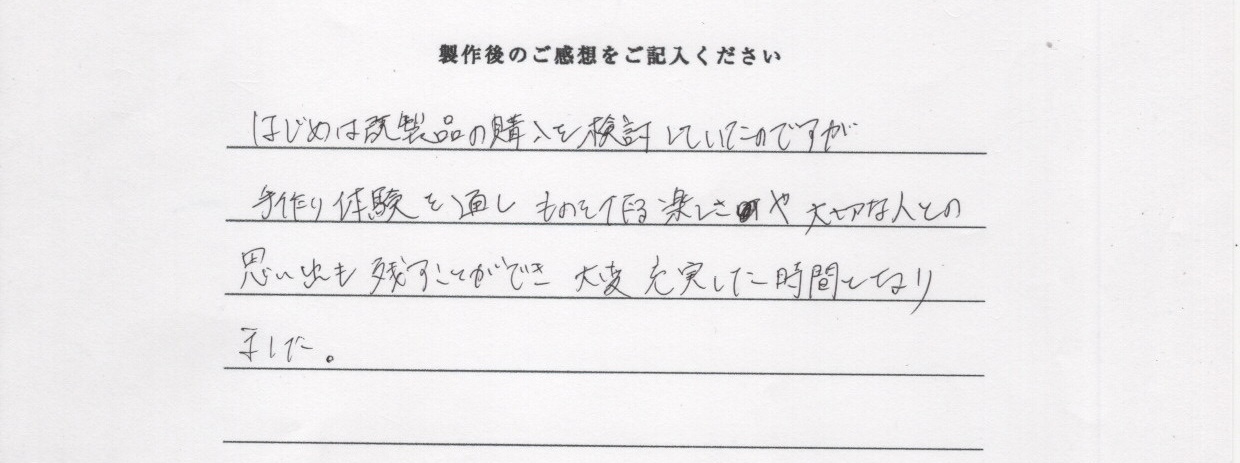 製作後のご感想をご記入ください
はじめは既製品の購入を検討していたのですが
手作り体験を通しものを作る楽しさや大切な人との
思い出も残すことができ大変充実した時間となり
ました。